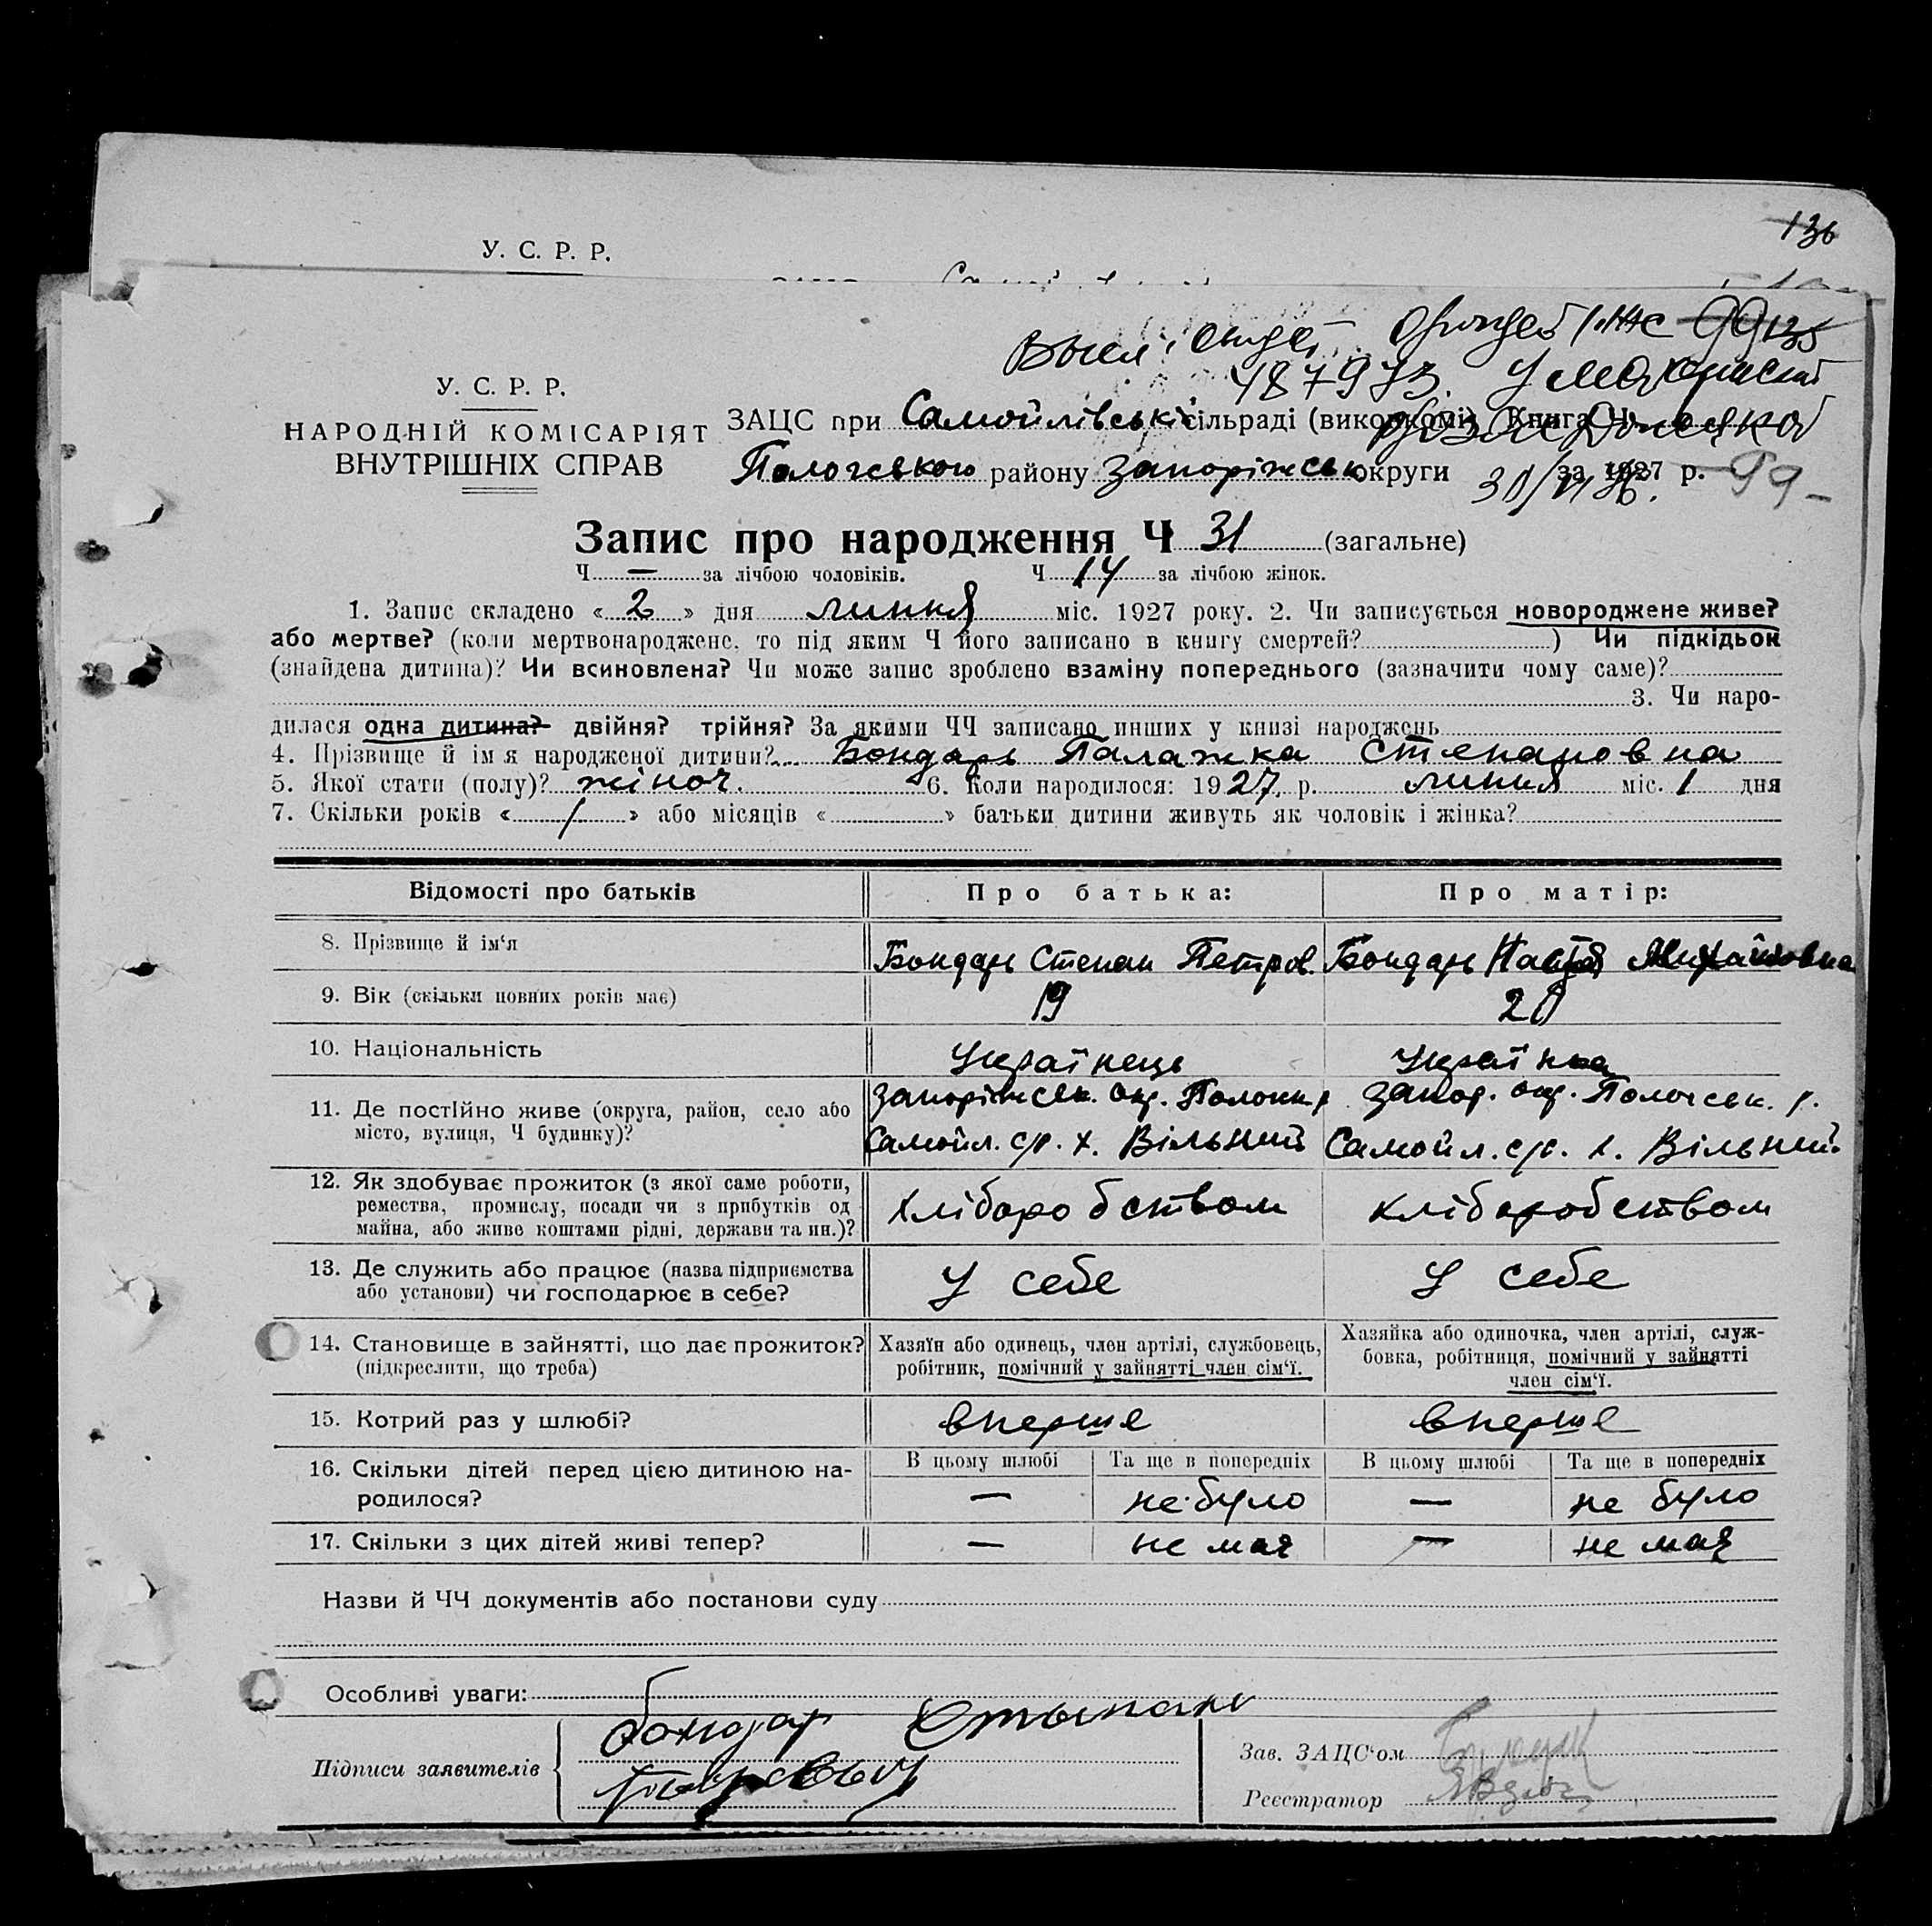 136
У. С. Р. Р.
99 135
487973.
У. С. Р. Р.
НАРОДНІЙ КОМІСАРІЯТ
ВНУТРІШНІХ СПРАВ
ЗАЦС при Самойлівській сільраді (виконкомі) Книга Ч.
Пологського району Запоріжськ округи за 1927 р. 99-
Запис про народження Ч 31 (загальне)
Ч — за лічбою чоловіків. Ч 14 за лічбою жінок.
1. Запис складено «2» дня липня міс. 1927 року. 2. Чи записується новороджене живе?
або мертве? (коли мертвонароджене, то під яким Ч його записано в книгу смертей? ) Чи підкідьок
(знайдена дитина)? Чи всиновлена? Чи може запис зроблено взаміну попереднього (зазначити чому саме)?
3. Чи наро-
дилася одна дитина? двійня? трійня? За якими ЧЧ записано инших у книзі народжень
4. Прізвище й ім'я народженої дитини? Бондарь Палажка Степановна
5. Якої статі (полу)? жіноч. 6. Коли народилося: 1927. р. липня міс. 1 дня
7. Скільки років «1» або місяців « » батьки дитини живуть як чоловік і жінка?
Відомості про батьків Про батька: Про матір:
8. Прізвище й ім'я Бондарь Степан Петров. Бондарь Настя Михайловна
9. Вік (скільки повних років має) 19 20
10. Національність Українець Українка
11. Де постІйно живе (округа, район, село або Запоріжськ. окр. Пологк р Запор. окр. Пологськ. р.
місто, вулиця, Ч будинку)? Самойл. с/р. х. Вільний Самойл. с/р. х. Вільний
12. Як здобуває прожиток (з якої саме роботи,
ремества, промислу, посади чи з прибутків од хліборобством хліборобством
майна, або живе коштами рідні, держави та ин.)?
13. Де служить або працює (назва підприємства У себе У себе
або установи) чи господарює в себе?
14. Становище в зайнятті, що дає прожиток? Хазяїн або одинець, член артілі, службовець, Хазяйка або одиночка, член артілі, служ-
(підкреслити, що треба) робітник, помічний у зайнятті член сім'ї. бовка, робітниця, помічний у зайнятті
член сім'ї.
15. Котрий раз у шлюбі? вперше вперше
16. Скільки дітей перед цією дитиною на- В цьому шлюбі Та ще в попередніх В цьому шлюбі Та ще в попередніх
родилося? — не було — не було
17. Скільки з цих дітей живі тепер? — не має — не має
Назви й ЧЧ документів або постанови суду
Особливі уваги:
Бондар Стыпань
Підписи заявителів Петровыч
Зав. ЗАЦС'ом
Реєстратор